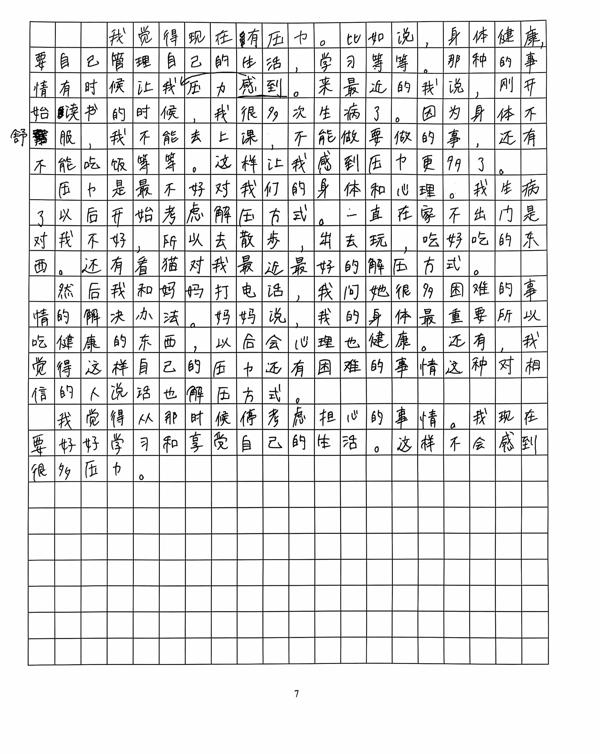 我觉得现在有压力。比如说，身体健康，
要自己管理自己的生活，学习等等。那种的事
情有时候让我压力感到。来最近的我说，刚开
始读书的时候，我很多次生病了。因为身体不
舒服，我不能去上课，不能做要做的事，还有
不能吃饭等等。这样让我感到压力更多了。
压力是最不好对我们的身体和心理。我生病
了以后开始考虑解压方式。一直在家不出门是
对我不好，所以去散步，出去玩，吃好吃的东
西。还有看猫对我最近最好的解压方式。
然后我和妈妈打电话，我问她很多困难的事
情的解决办法。妈妈说，我的身体最重要所以
吃健康的东西，以后会心理也健康。还有，我
觉得这样自己的压力还有困难的事情这种对相
信的人说话也解压方式。
我觉得从那时候停考虑担心的事情。我现在
要好好学习和享受自己的生活。这样不会感到
很多压力。
7